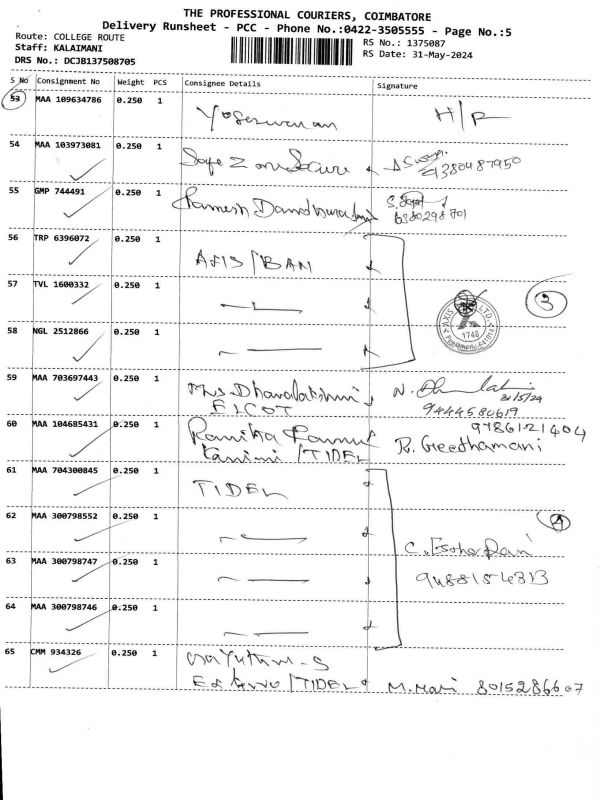 THE PROFESSIONAL COURIERS, COIMBATORE
Delivery Runsheet - PCC - Phone No.:0422-3505555 - Page No.:5
Route: COLLEGE ROUTE
Staff: KALAIMANI
DRS No.: DCJB137508705
RS No.: 1375087
RS Date: 31-May-2024
S No Consignment No Weight PCS Consignee Details Signature
53 MAA 109634786 0.250 1 Yogeswaran H/R
54 MAA 103973081 0.250 1 Safe Zone Secure 9380487950
55 GMP 744491 0.250 1 Ramesh 6380298701
56 TRP 6396072 0.250 1 AXIS/BAN
57 TVL 1600332 0.250 1
3
58 NGL 2512866 0.250 1
1748
59 MAA 703697443 0.250 1 Mrs. Dhanalakshmi N.
31/5/24
ELCOT 9444580619
60 MAA 104685431 0.250 1 9786121404
/TIDEL R. Geethamani
61 MAA 704300845 0.250 1 TIDEL
62 MAA 300798552 0.250 1 4
C. Esther Rani
63 MAA 300798747 0.250 1
64 MAA 300798746 0.250 1
65 CMM 934326 0.250 1
/TIDEL M. Mari 8015286607